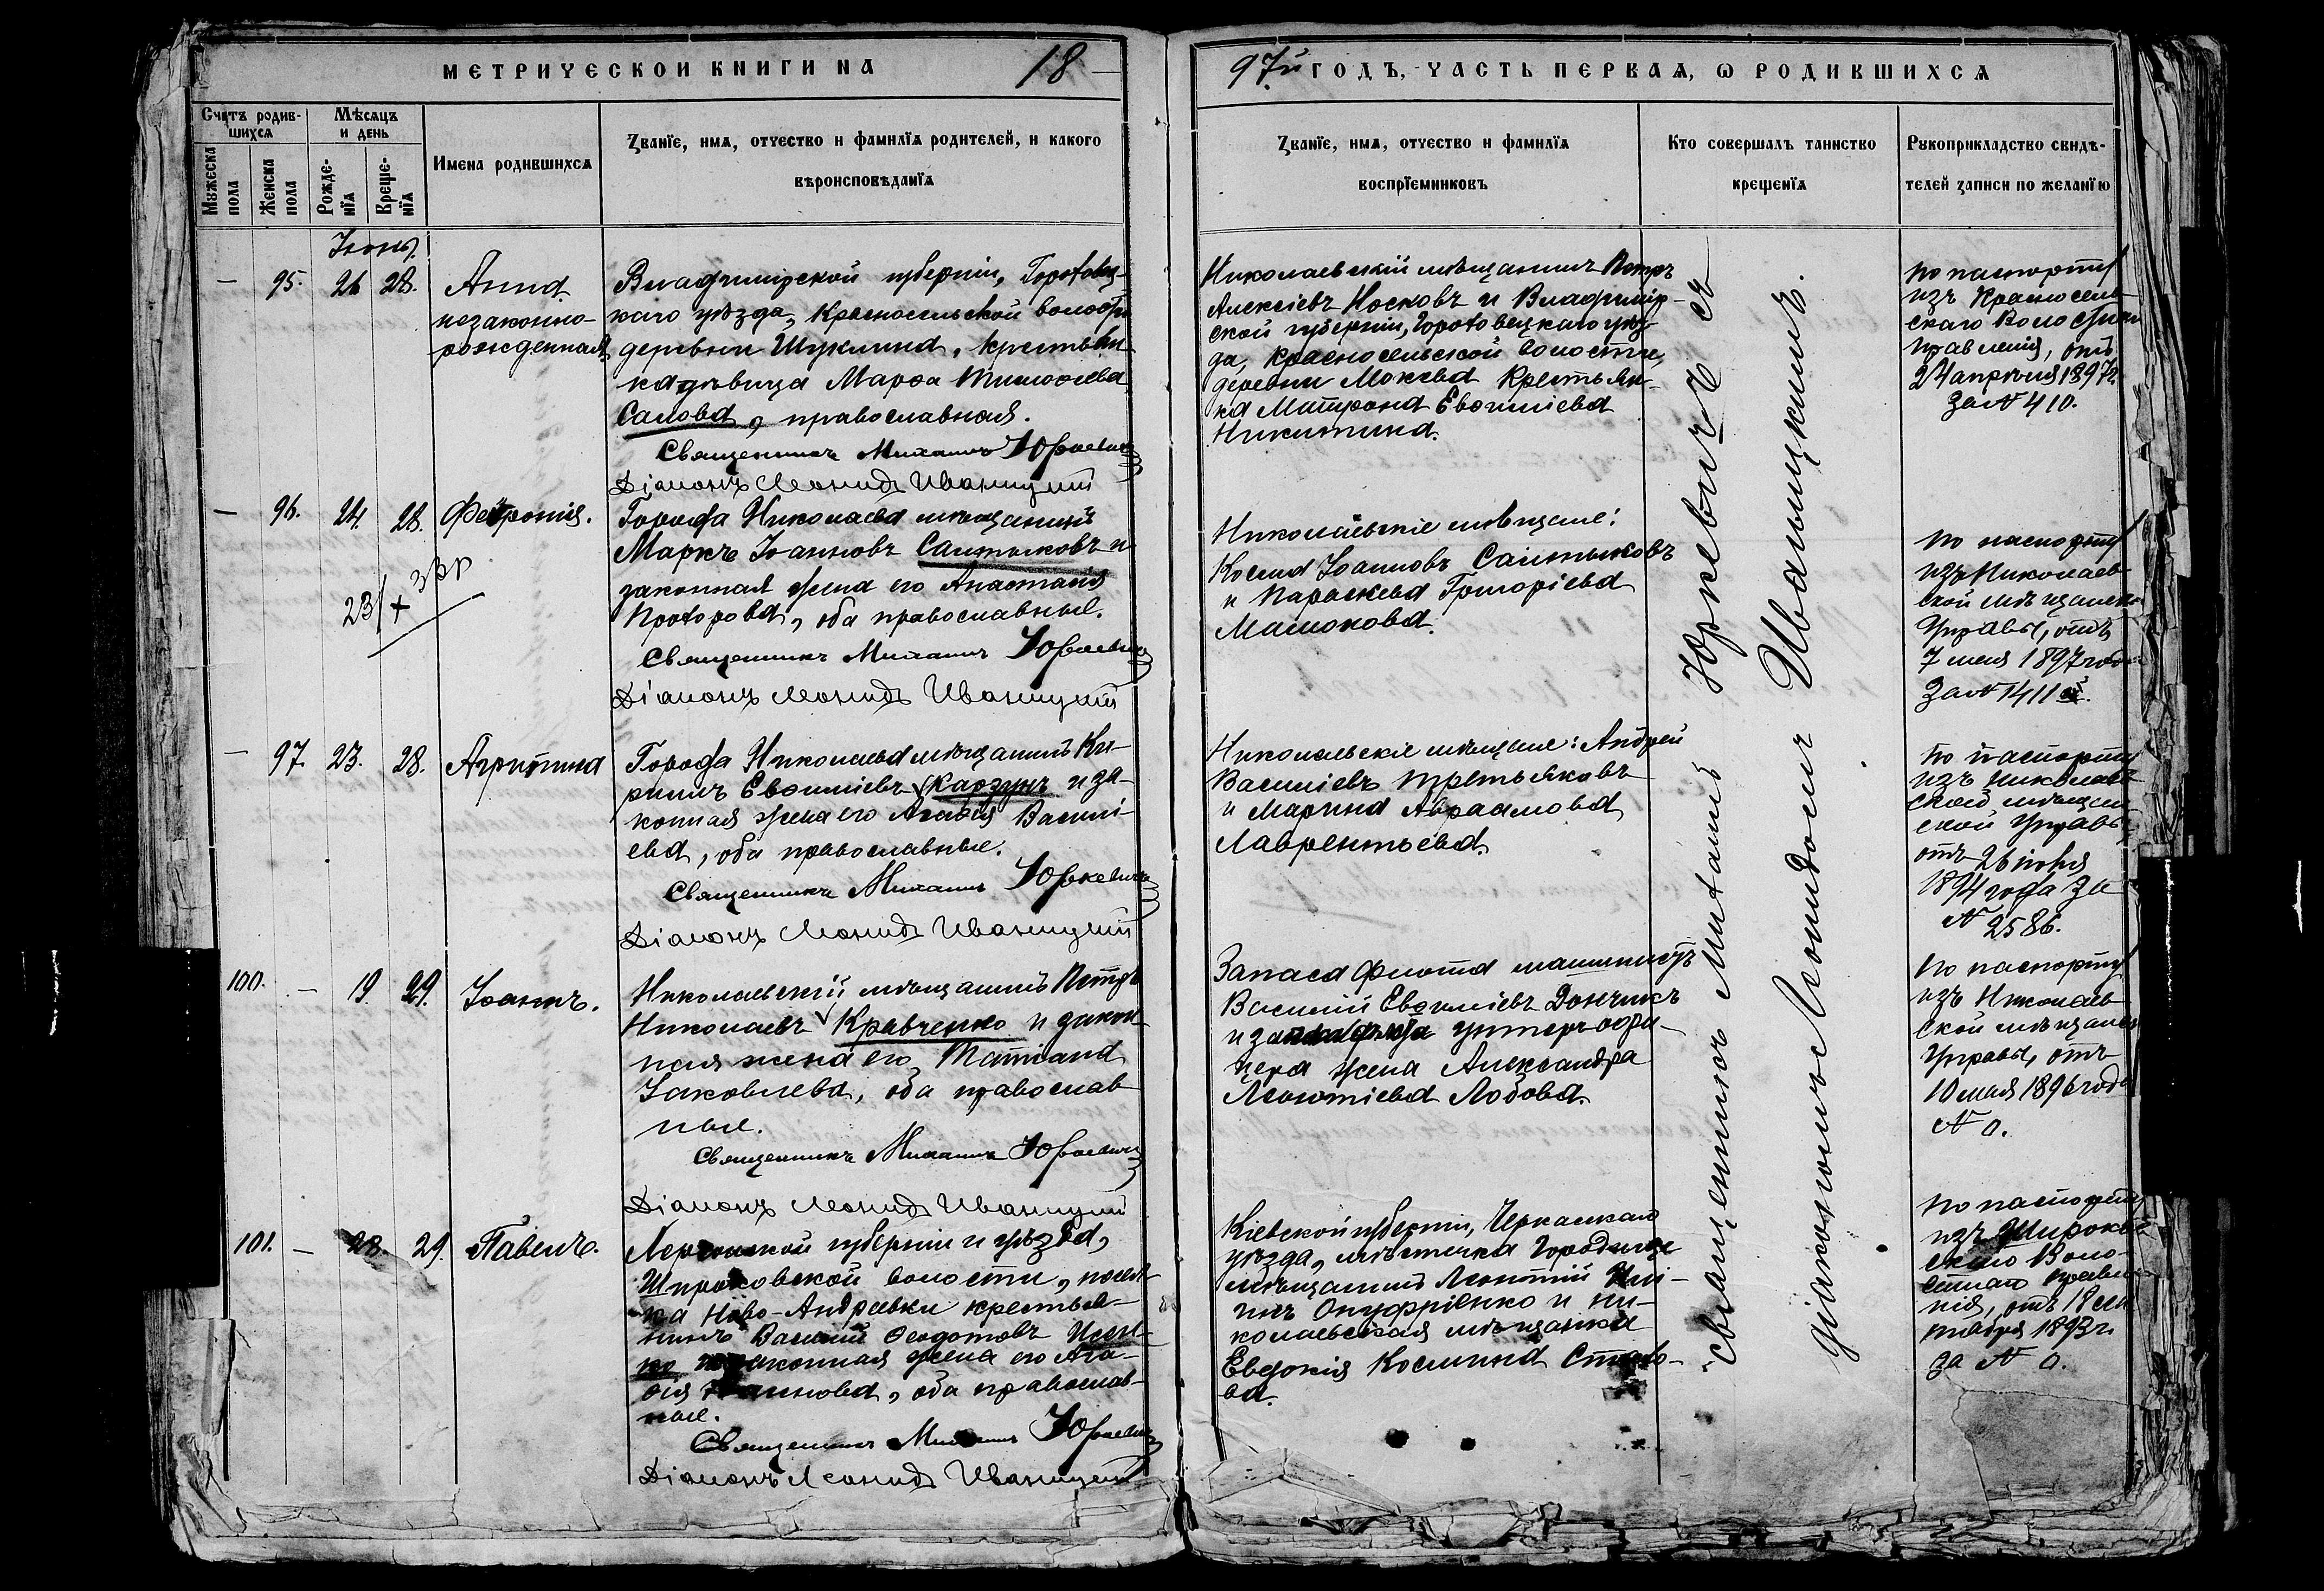 МЕТРИЧЕСКОЙ КНИГИ НА 18
97й ГОДЪ, ЧАСТЬ ПЕРВАѦ, Ѡ РОДИВШИХСѦ
Счетъ родив-
шихсѧ
Мꙋжеска пола
Женска пола
Мѣсѧцъ
и день
Рожде-
нїѧ
Креще-
нїѧ
Имена родившихсѧ
Званїе, имѧ, отчество и фамилїѧ родителей, и какого
вѣроисповѣданїѧ
Званїе, имѧ, отчество и фамилїѧ
воспрїемниковъ
Кто совершалъ таинство
крещенїѧ
Рꙋкоприкладство свидѣ-
телей записи по желанїю
Іюнь.
— 95. 26 28.
Анна
незаконно-
рожденная
Владимірской губерніи, Горохов
каго уѣзда, Красносельской волости
деревни Шуклина, крестьян
ка дѣвица Марѳа Тимоѳеева
Салова, православная.
Священникъ Михаилъ Юркевичъ
Діаконъ Леонидъ Иваницкій
Николаевскій мѣщанинъ Петръ
Алексіевъ Носковъ и Владимір-
ской губерніи, Гороховецкаго уѣз-
да, Красносельской волости,
деревни Мокеева Крестьян-
ка Матрона Евѳиміева
Никитина.
по паспорту
изъ Красносель
скаго Волостнаго
правленія, отъ
24 апрѣля 1897 г.
за № 410.
— 96. 24. 28. Февронія.
23/
Города Николаева мѣщанинъ
Маркъ Іоанновъ Салтыковъ и
законная жена его Анастасія
Прохорова, оба православные.
Священникъ Михаилъ Юркевичъ
Діаконъ Леонидъ Иваницкій
Николаевскіе мѣщане:
Косма Іоанновъ Салтыковъ
и Параскева Григоріева
Малюкова.
по паспорту
изъ Николаев
ской мѣщанской
Управы, отъ
7 мая 1897 года
за № 1411
— 97. 23. 28. Агрипина
Города Николаева мѣщанинъ Ки-
риллъ Евѳиміевъ Карзунъ и за-
конная жена его Агаѳія Василі-
ева, оба православные.
Священникъ Михаилъ Юркевичъ
Діаконъ Леонидъ Иваницкій
Николаевскіе мѣщане: Андрей
Василіевъ Третьяковъ
и Марина Авраамова
Лаврентьева.
по паспорту
изъ Николаев
ской мѣщан
ской Управы
отъ 26 іюня
1894 года за
№ 2586.
100. — 19. 29. Іоаннъ.
Николаевскій мѣщанинъ Петръ
Николаевъ Кравченко и закон
ная жена его Татіана
Іаковлева, оба православ
ные.
Священникъ Михаилъ Юркевичъ
Діаконъ Леонидъ Иваницкій
Запаса флота машинистъ
Василій Евѳиміевъ Дончикъ
и унтеръ-офи-
цера жена Александра
Леонтіева Лобова.
По паспорту
изъ Николаев
ской мѣщанск
Управы, отъ
10 мая 1896 года
№ 0.
101. — 28. 29. Павелъ.
Херсонской губерніи и уѣзда,
Широковской волости, посел
ка Ново-Андреевки крестья-
нинъ Василій Ѳеодотовъ
законная жена его Ага-
ѳія оба православ-
ные.
Священникъ Михаилъ Юркевичъ
Діаконъ Леонидъ Иваницкій
Кіевской губерніи, Черкаскаго
уѣзда, мѣстечка Городище
мѣщанинъ Леонтій
Онуфріенко и ни-
колаевская мѣщанка
Евдокія Космина
по паспорту
изъ Широков
скаго Воло-
стнаго правле-
нія, отъ 18 сен
тября 1893 г.
за № 0.
Священникъ Михаилъ Юркевичъ съ
діакономъ Леонидомъ Иваницкимъ.